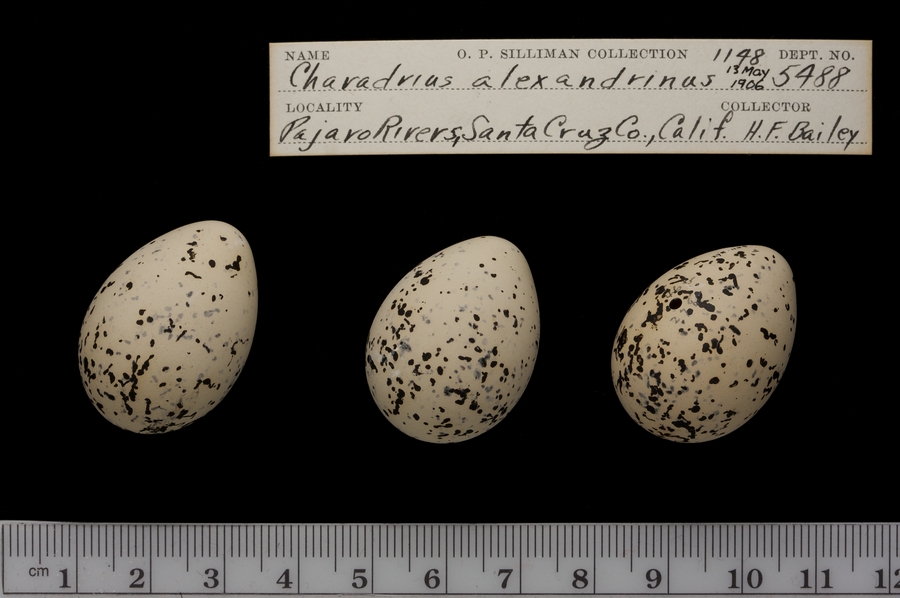 NAME O. P. SILLIMAN COLLECTION 1148 DEPT. NO.
Charadrius alexandrinus 13 May 1906 5488
LOCALITY COLLECTOR
Pajaro Rivers, Santa Cruz Co., Calif. H.F. Bailey
cm 1 2 3 4 5 6 7 8 9 10 11 12